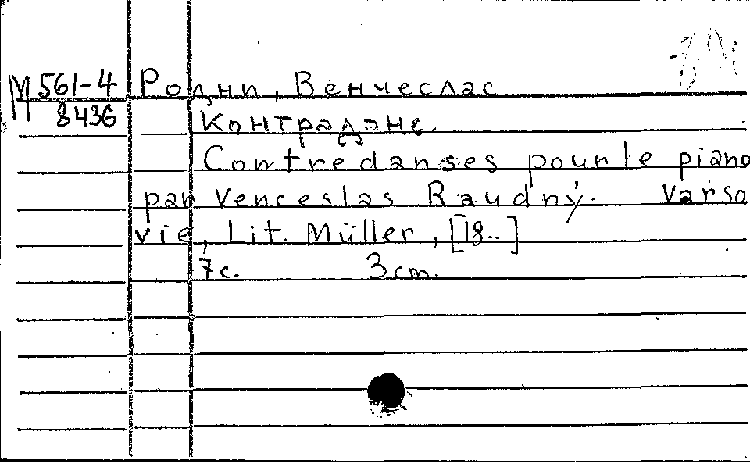 М 561-4 Роднп, Венчеслас
8436 Контрадэнс.
Contredanses pour le piano
par Venceslas Raudný. Varso
vie, Lit. Müller, [18..]
7 с. 3 cm.